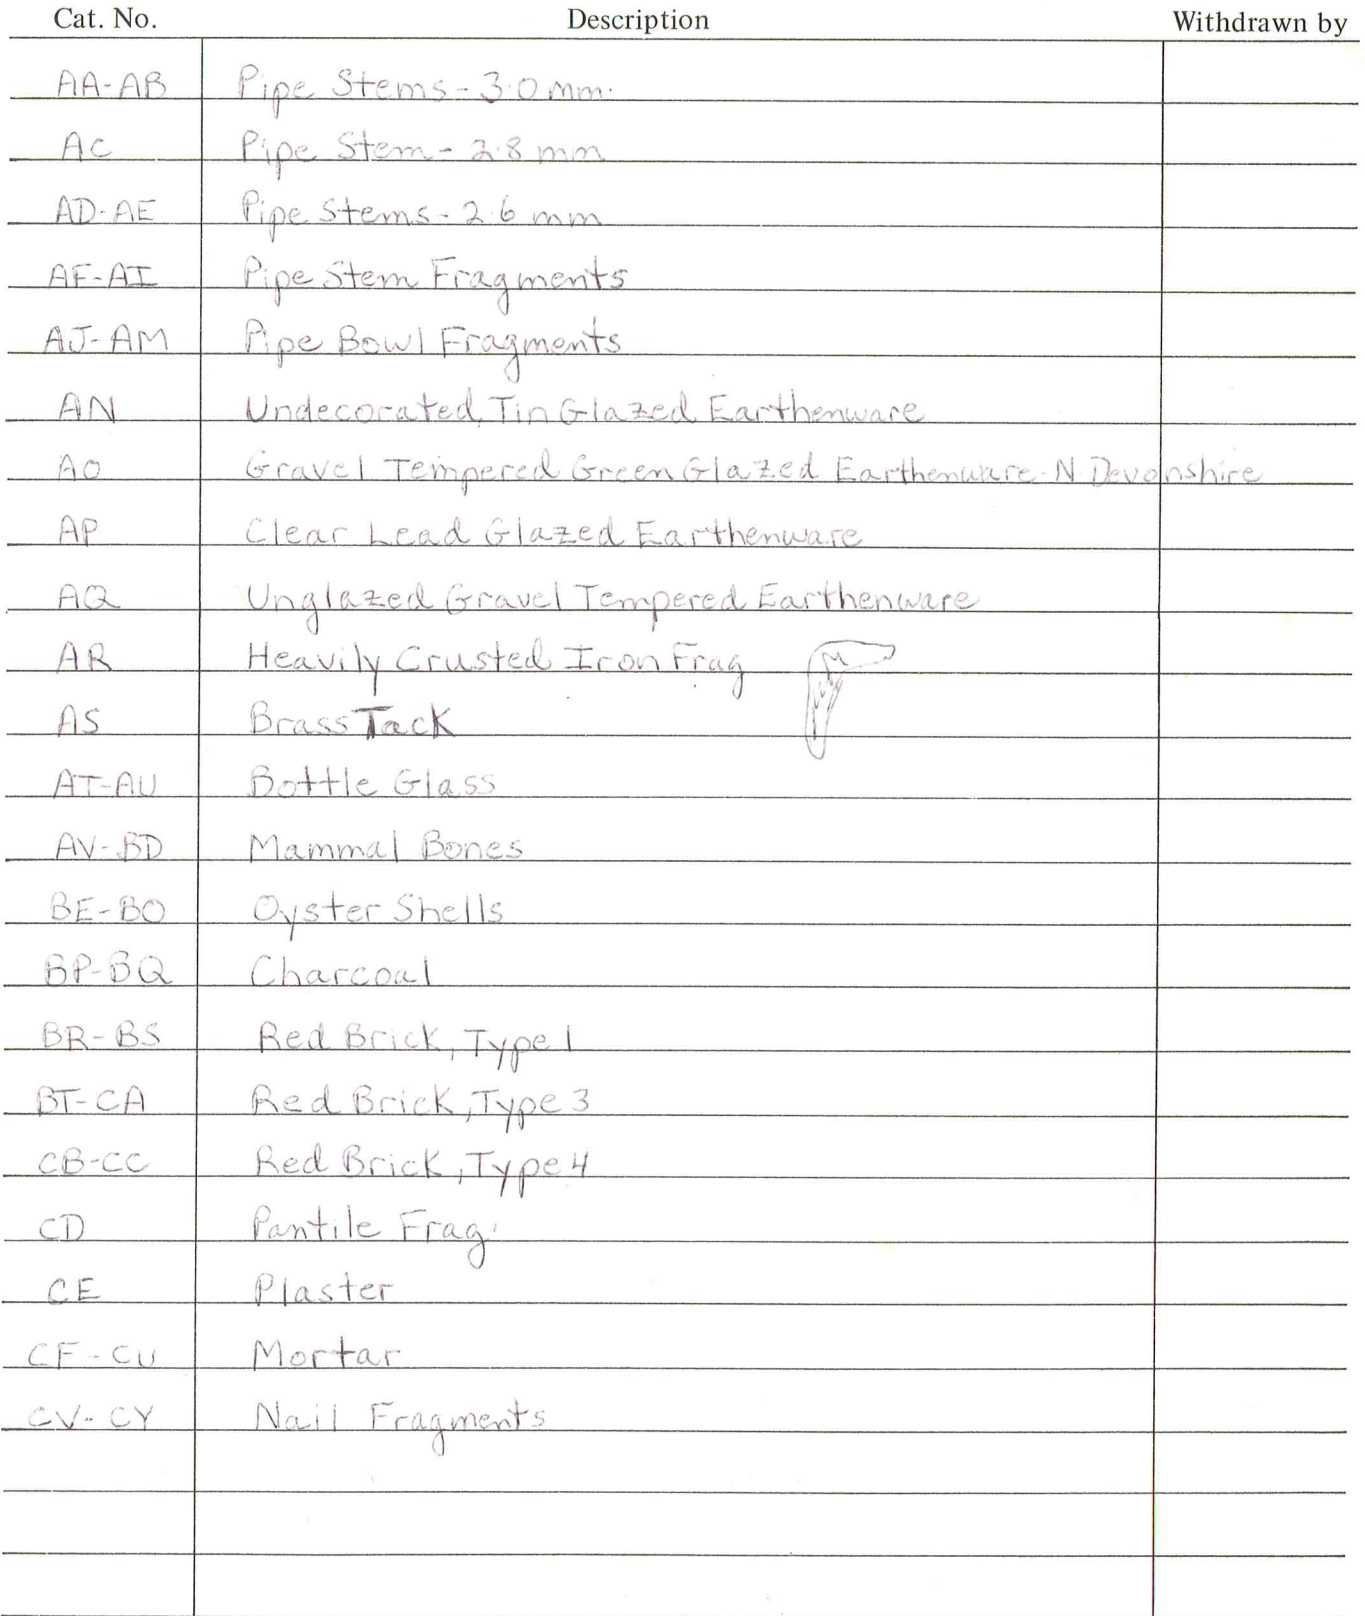 Cat. No. Description Withdrawn by
AA-AB Pipe Stems - 3.0 mm.
AC Pipe Stem - 2.8 mm
AD-AE Pipe Stems - 2.6 mm
AF-AI Pipe Stem Fragments
AJ-AM Pipe Bowl Fragments
AN Undecorated Tin Glazed Earthenware
AO Gravel Tempered Green Glazed Earthenware. N. Devonshire
AP Clear Lead Glazed Earthenware
AQ Unglazed Gravel Tempered Earthenware
AR Heavily Crusted Iron Frag
AS Brass Tack
AT-AU Bottle Glass
AV-BD Mammal Bones
BE-BO Oyster Shells
BP-BQ Charcoal
BR-BS Red Brick, Type 1
BT-CA Red Brick, Type 3
CB-CC Red Brick, Type 4
CD Pantile Frag.
CE Plaster
CF-CU Mortar
CV-CY Nail Fragments